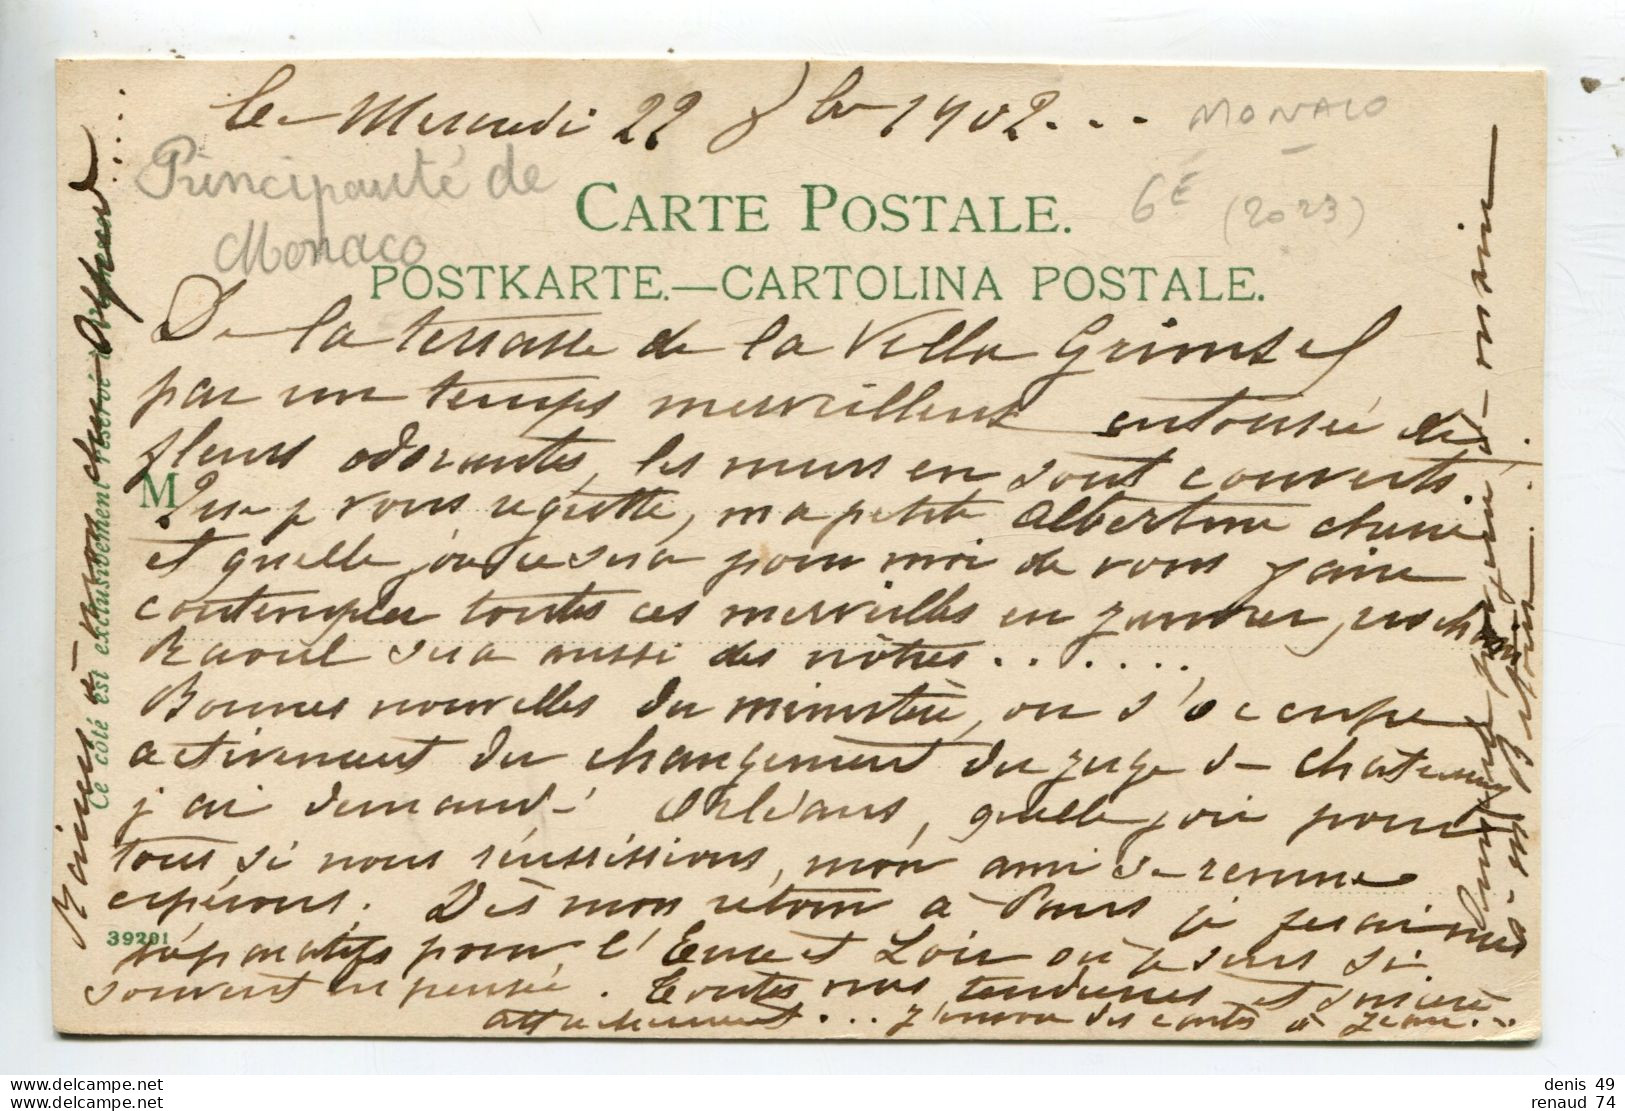 le Mercredi 22 8bre 1902...
MONACO
Principauté de
Monaco
6E (2023)
CARTE POSTALE.
POSTKARTE.—CARTOLINA POSTALE.
De la terrasse de la Villa Grimsel
par un temps merveilleux entourée de
fleurs odorantes, les murs en sont couverts.
M
Que je vous regrette, ma petite Albertine chérie
et quelle joie ce sera pour moi de vous faire
contempler toutes ces merveilles en janvier, prochain
Raoul sera aussi des nôtres......
Bonnes nouvelles du ministère, on s'occupe
activement du changement du juge de Chateau
j'ai demandé Orléans, quelle joie pour
tous si nous réussissions, mon ami de renne
espérons. Dès mon retour à Paris je ferai mes
préparatifs pour l'Eure et Loir où je suis si
souvent en pensée. Toutes nos tendresses et sincère
attachement... J'envoie des cartes à Jean...
39201
Ce côté est exclusivement réservé
Raines à mon cher Alfred....